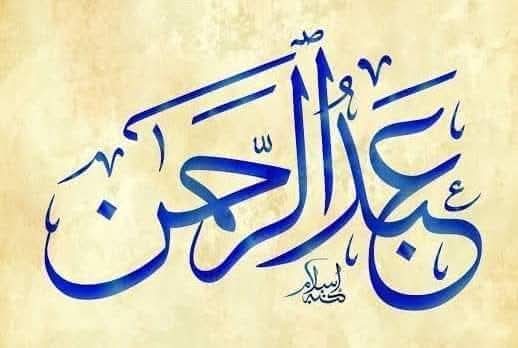 عَبدُ الرَّحمن
كتبه إسلام